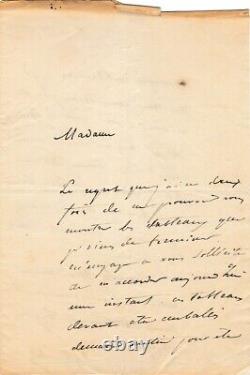 Madame
Le regret que j'ai eu deux
fois de ne pouvoir vous
montrer les tableaux que
je viens de terminer
m'engage à vous solliciter
de m'accorder aujourd'hui
un instant ces tableaux
devant être emballés
demain matin pour être